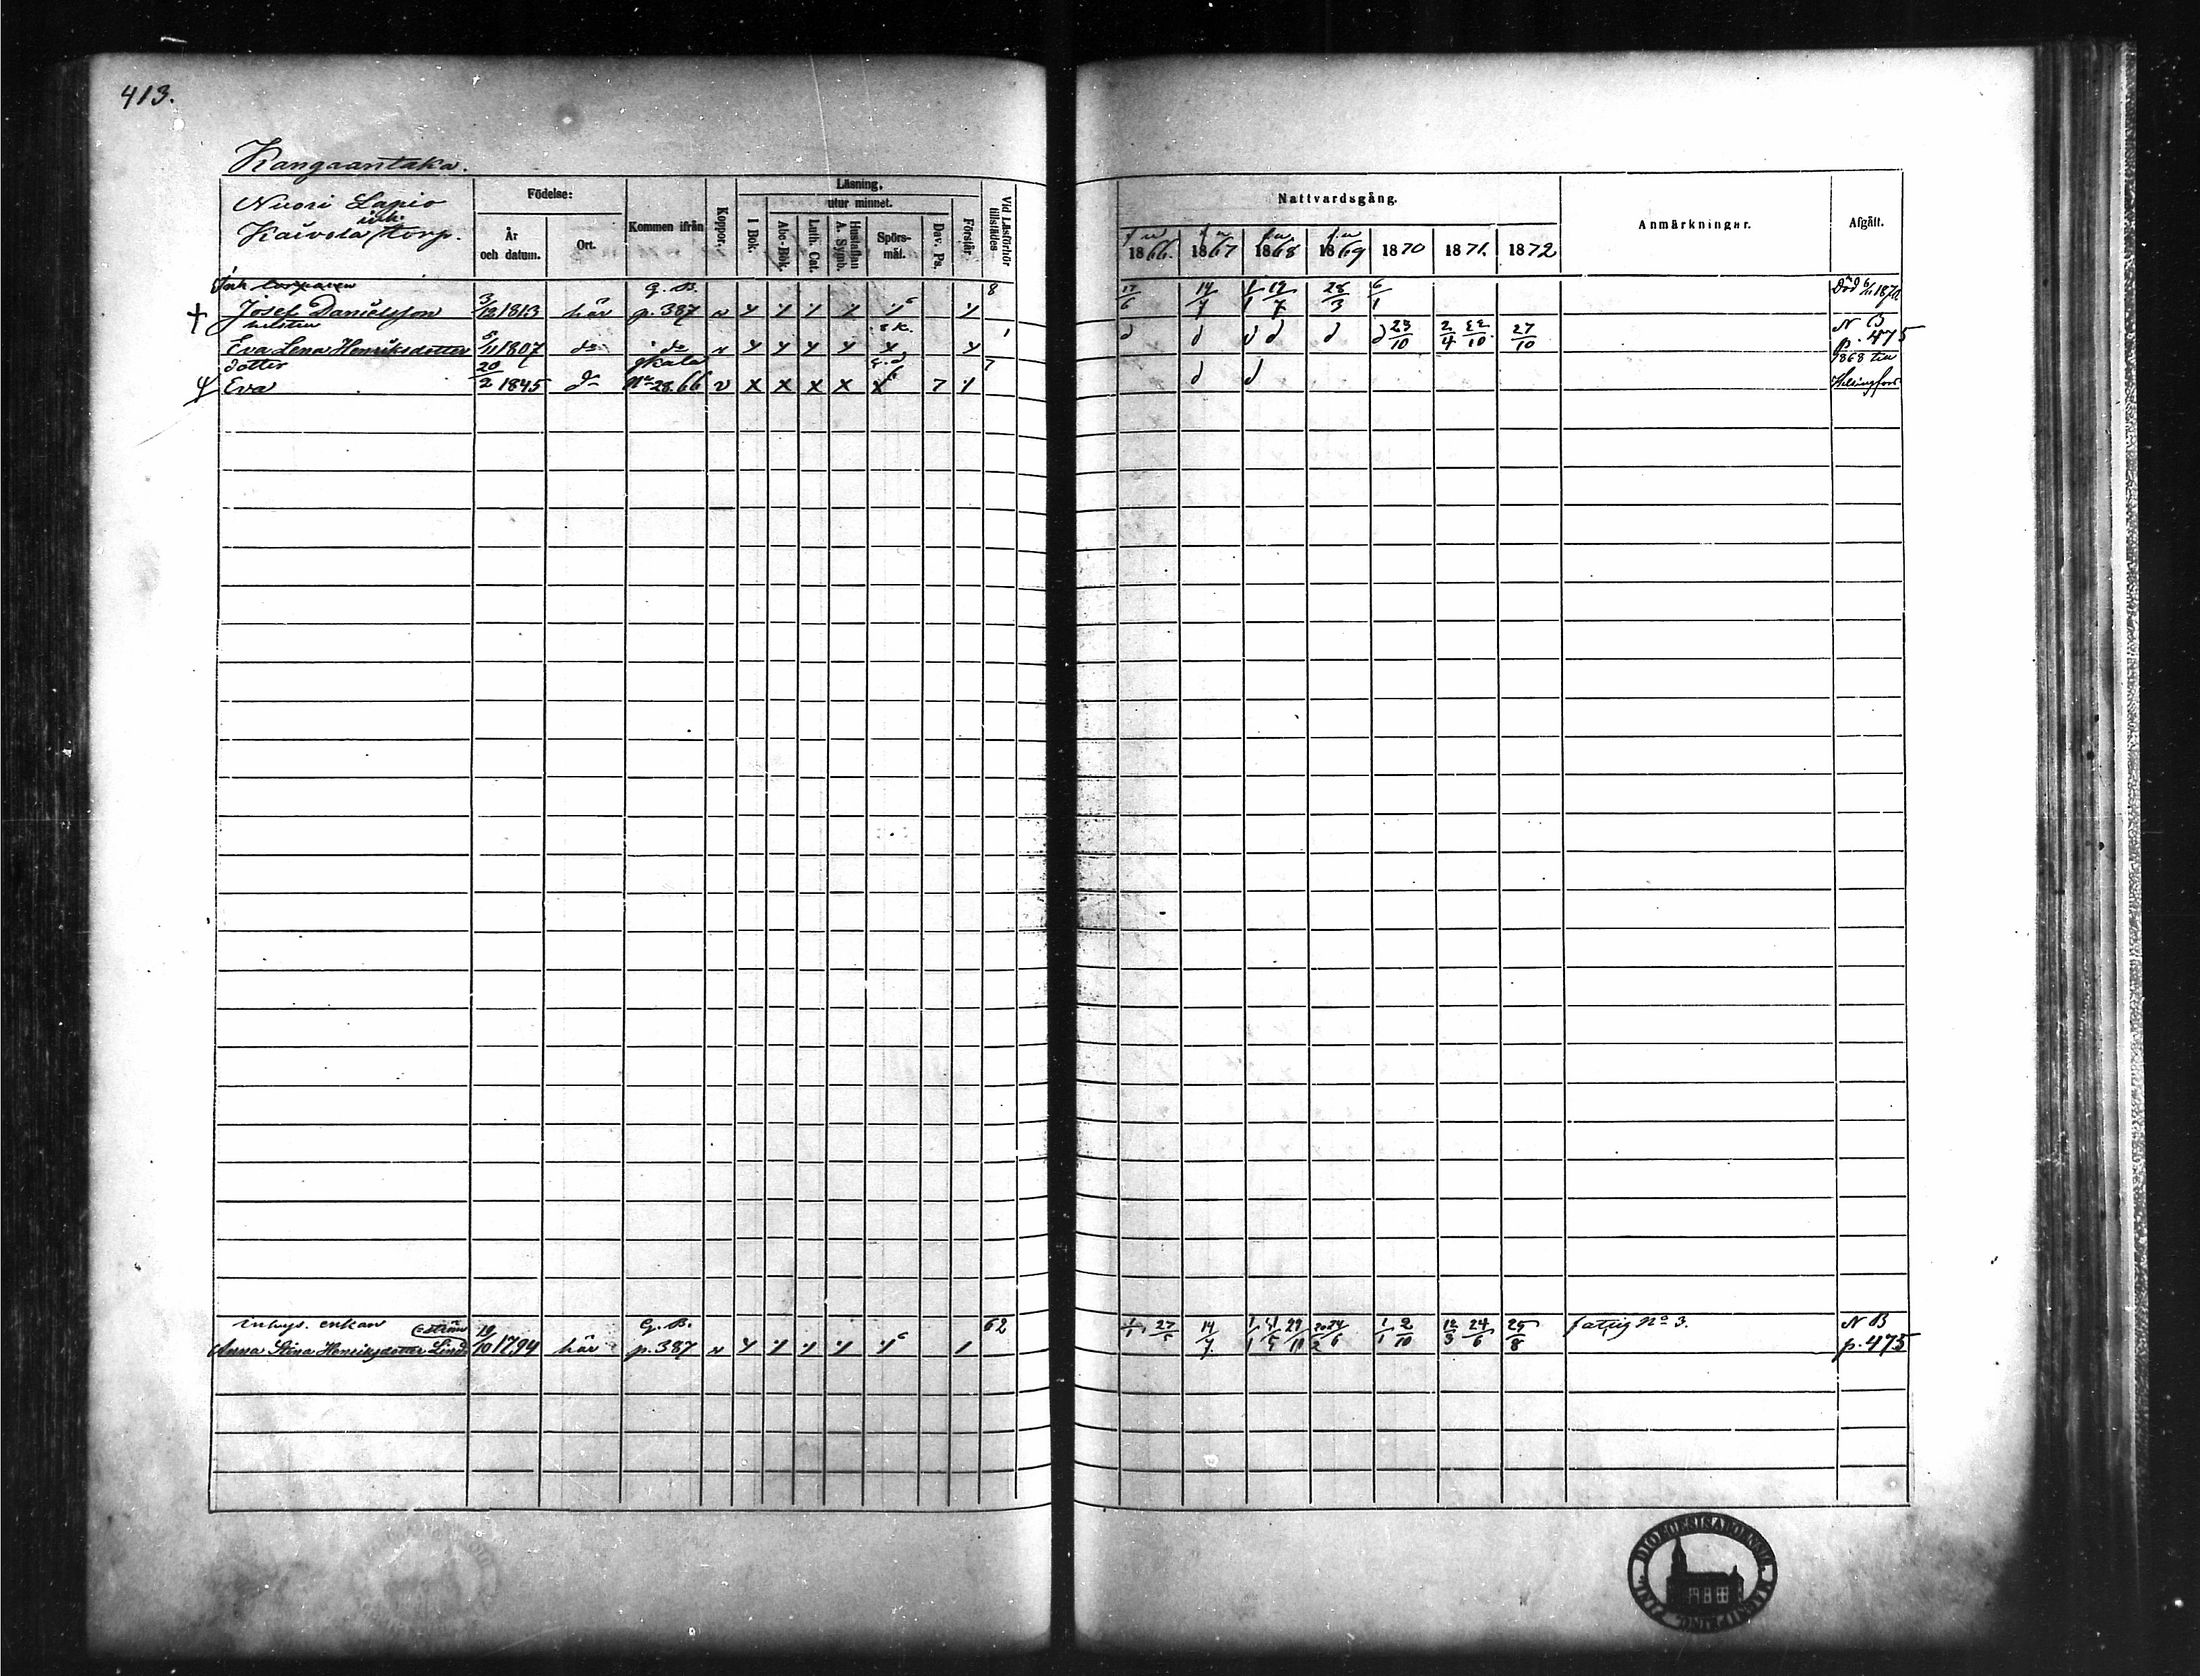 413.
Kangaantaka.
Nuori Lapio
inh.
Kaivola torp.
Födelse:
År och datum.
Ort.
Kommen ifrån
Koppor.
Läsning,
utur minnet.
I Bok.
Abc-Bok.
Luth. Cat.
Hustaflan A. Symb.
Spörsmål.
Dav. Ps.
Förstår.
Vid Läsförhör tillstädes
Nattvardsgång.
1866. 1867 1868 1869 1870 1871. 1872
Anmärkningar.
Afgått.
Inh torparen G. B. 8
Josef Danielsson 3/12 1813 här p. 387 17/6 14/7 1/1 19/7 28/3 6/1 Död 6/11 1870
Eva Lena Henriksdotter 5/11 1807 do do 23/10 2/4 22/10 27/10 N B p. 475
dotter 7 1868 till
Eva 20/2 1845 do No 28.66 v x x x x x 7 Helsingfors
inhys. enkan G. B. 62
Anna Stina Henriksdotter Lindström 19/10 1794 här p. 387 1/1 27/5 14/7 1/1 29/11 24/6 1/1 2/10 12/3 24/6 25/8 fattig No 3. N B p. 475